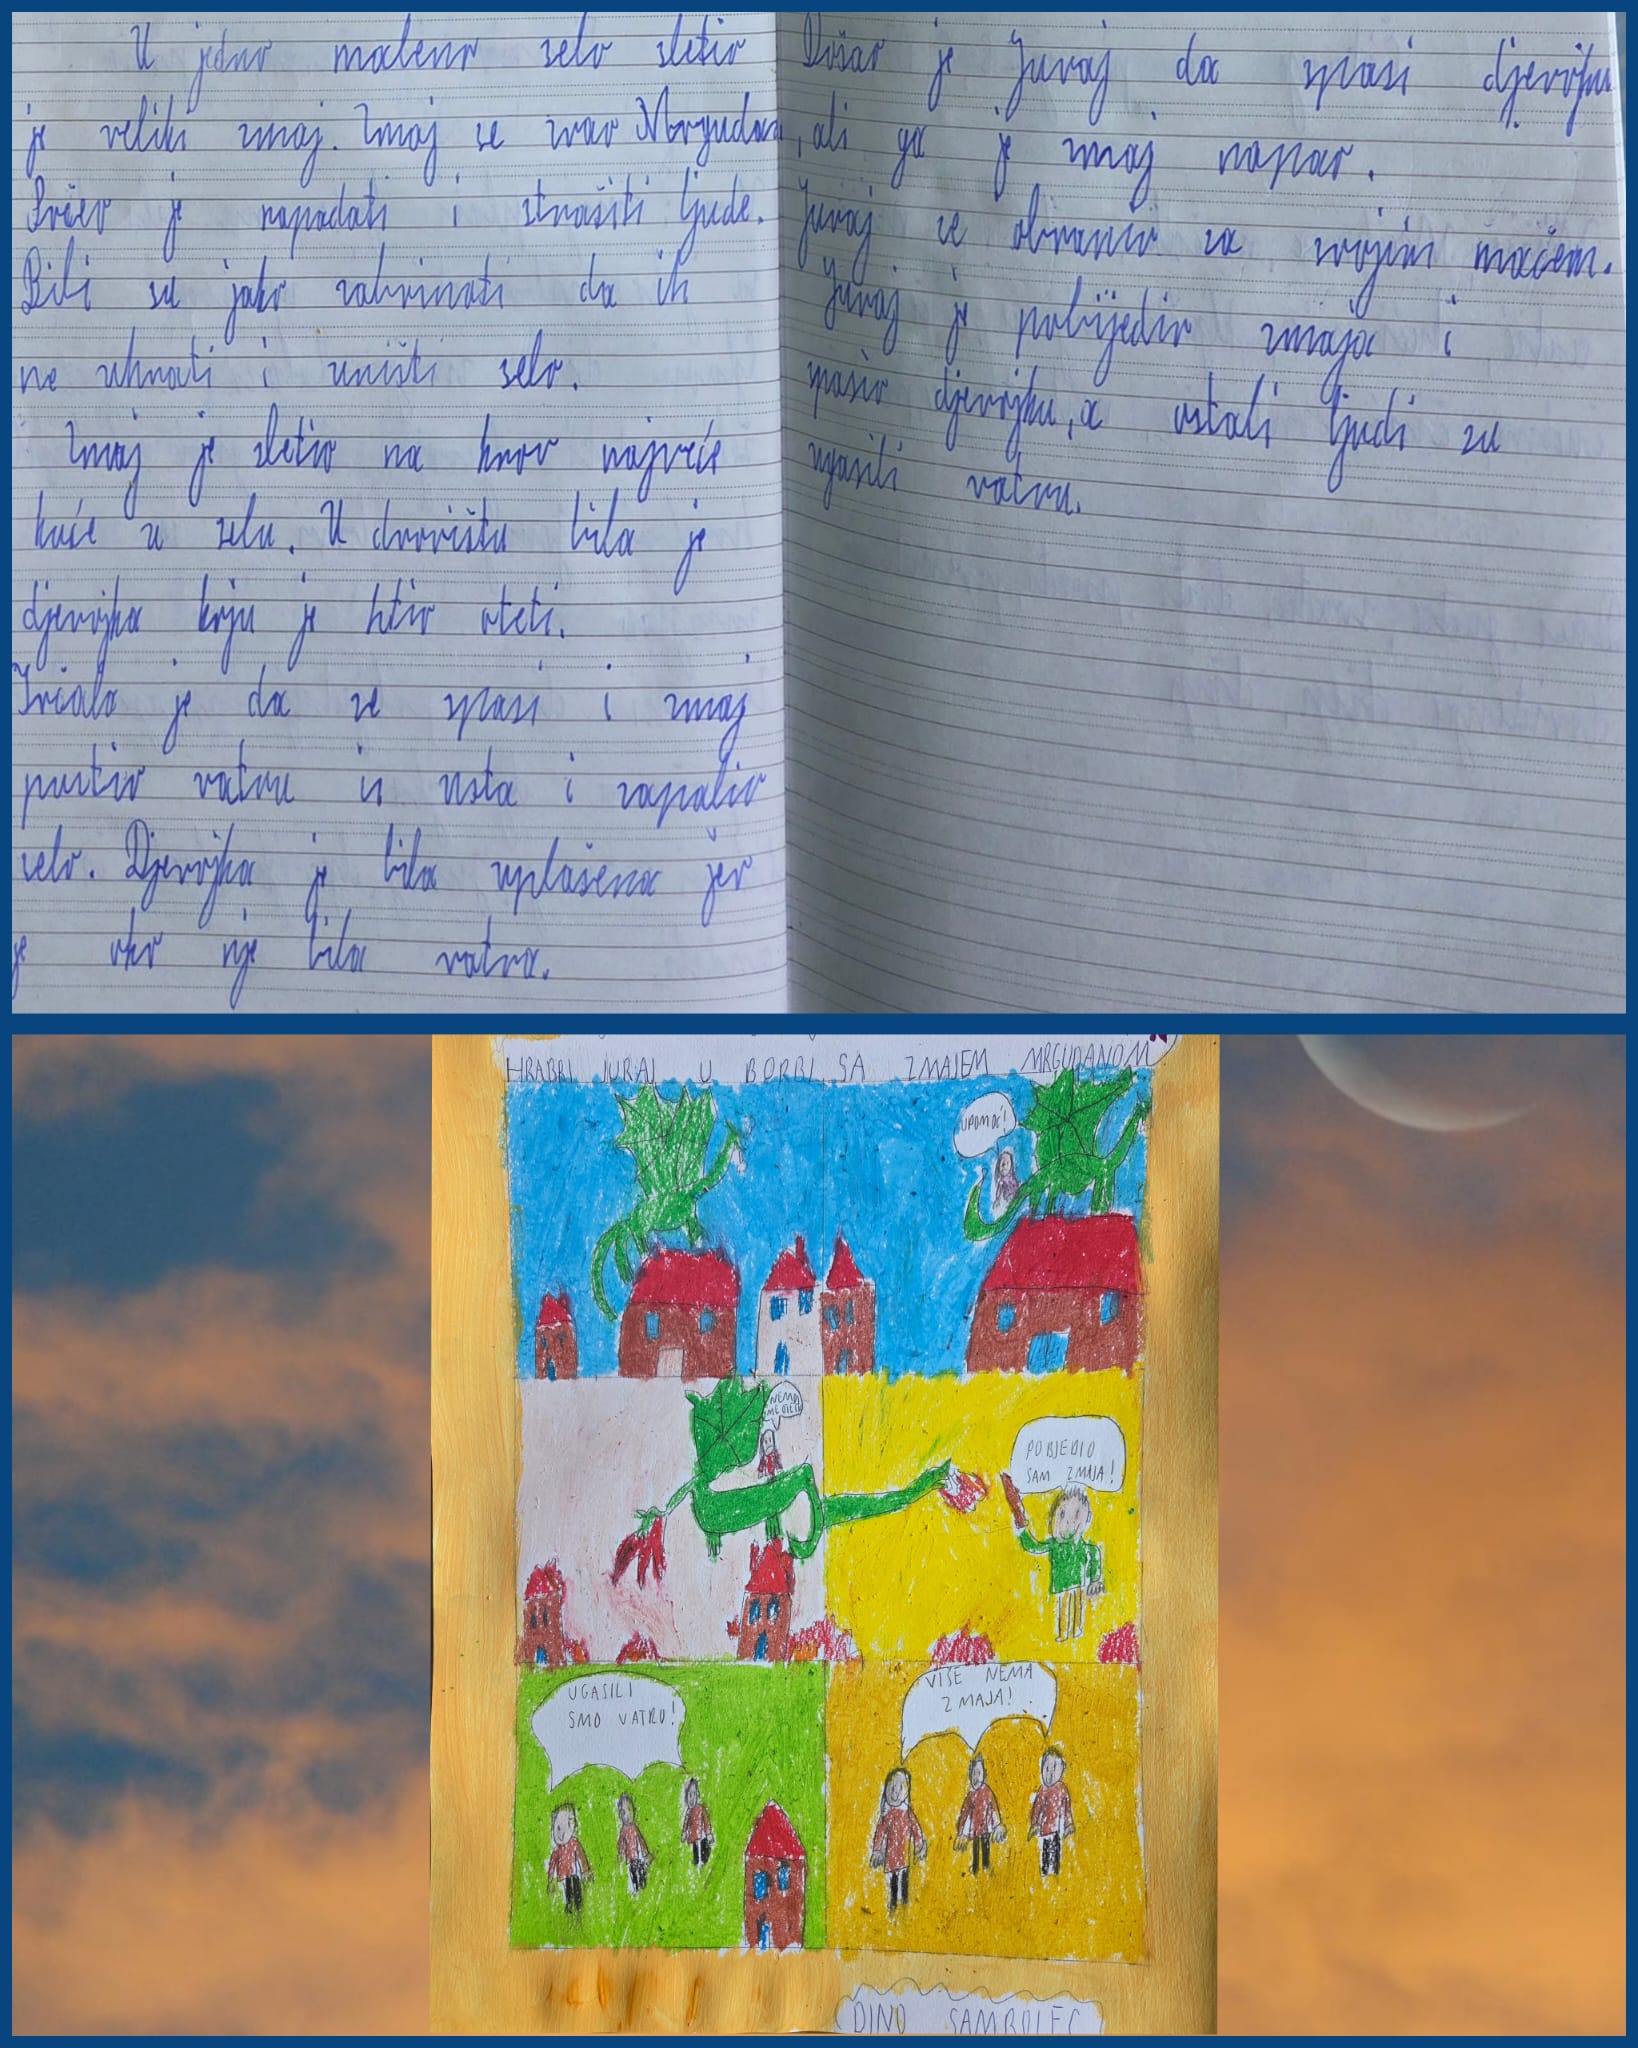 U jedno maleno selo sletio
je veliki zmaj. Zmaj se zvao Mrgudan.
Počeo je napadati i strašiti ljude.
Bili su jako zabrinuti da ih
ne uhvati i uništi selo.
Zmaj je sletio na krov najveće
kuće u selu. U dvorištu bila je
djevojka koju je htio oteti.
Trčala je da se spasi i zmaj
pustio vatru iz usta i zapalio
selo. Djevojka je bila uplašena jer
je oko nje bila vatra.
Došao je Juraj da spasi djevojku
, ali ga je zmaj napao.
Juraj se obranio sa svojim mačem.
Juraj je pobijedio zmaja i
spasio djevojku, a ostali ljudi su
ugasili vatru.
HRABRI JURAJ U BORBI SA ZMAJEM MRGUDANOM
UPOMOĆ!
NEMOJ
ME
POBJEDIO
SAM ZMAJA!
UGASILI
SMO VATRU!
VIŠE NEMA
ZMAJA!
DINO SAMBOLEC